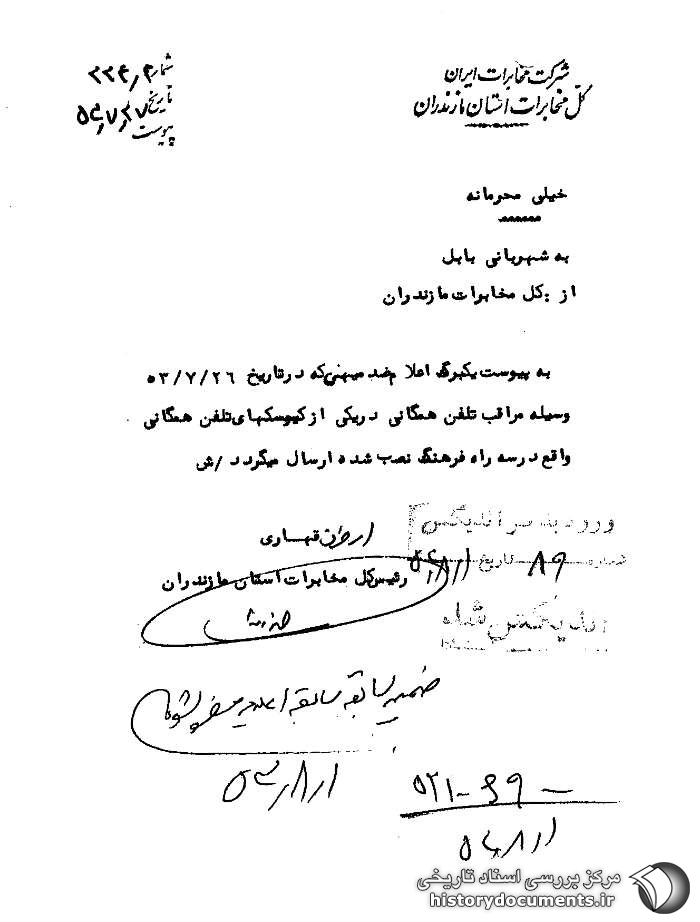 شرکت مخابرات ایران
کل مخابرات استان مازندران
شماره ۲۳۴٫۴
تاریخ ۵۳٫۷٫۲۷
پیوست
خیلی محرمانه
به شهربانی بابل
از : کل مخابرات مازندران
به پیوست یکبرگ اعلام ضد میهنی که در تاریخ ۵۳/۷/۲۶
وسیله مراقب تلفن همگانی در یکی از کیوسکهای تلفن همگانی
واقع در سه راه فرهنگ نصب شده ارسال میگردد /ش
قهاری
رئیس کل مخابرات استان مازندران
ورود به دفتر اندیکس
شماره ۸۹ تاریخ
اندیکس شد
ضمیمه سابقه اعلامیه شود
۵۳٫۸٫۱
۵۲۱-۶۹-
۸٫۱
مرکز بررسی اسناد تاریخی
historydocuments.ir